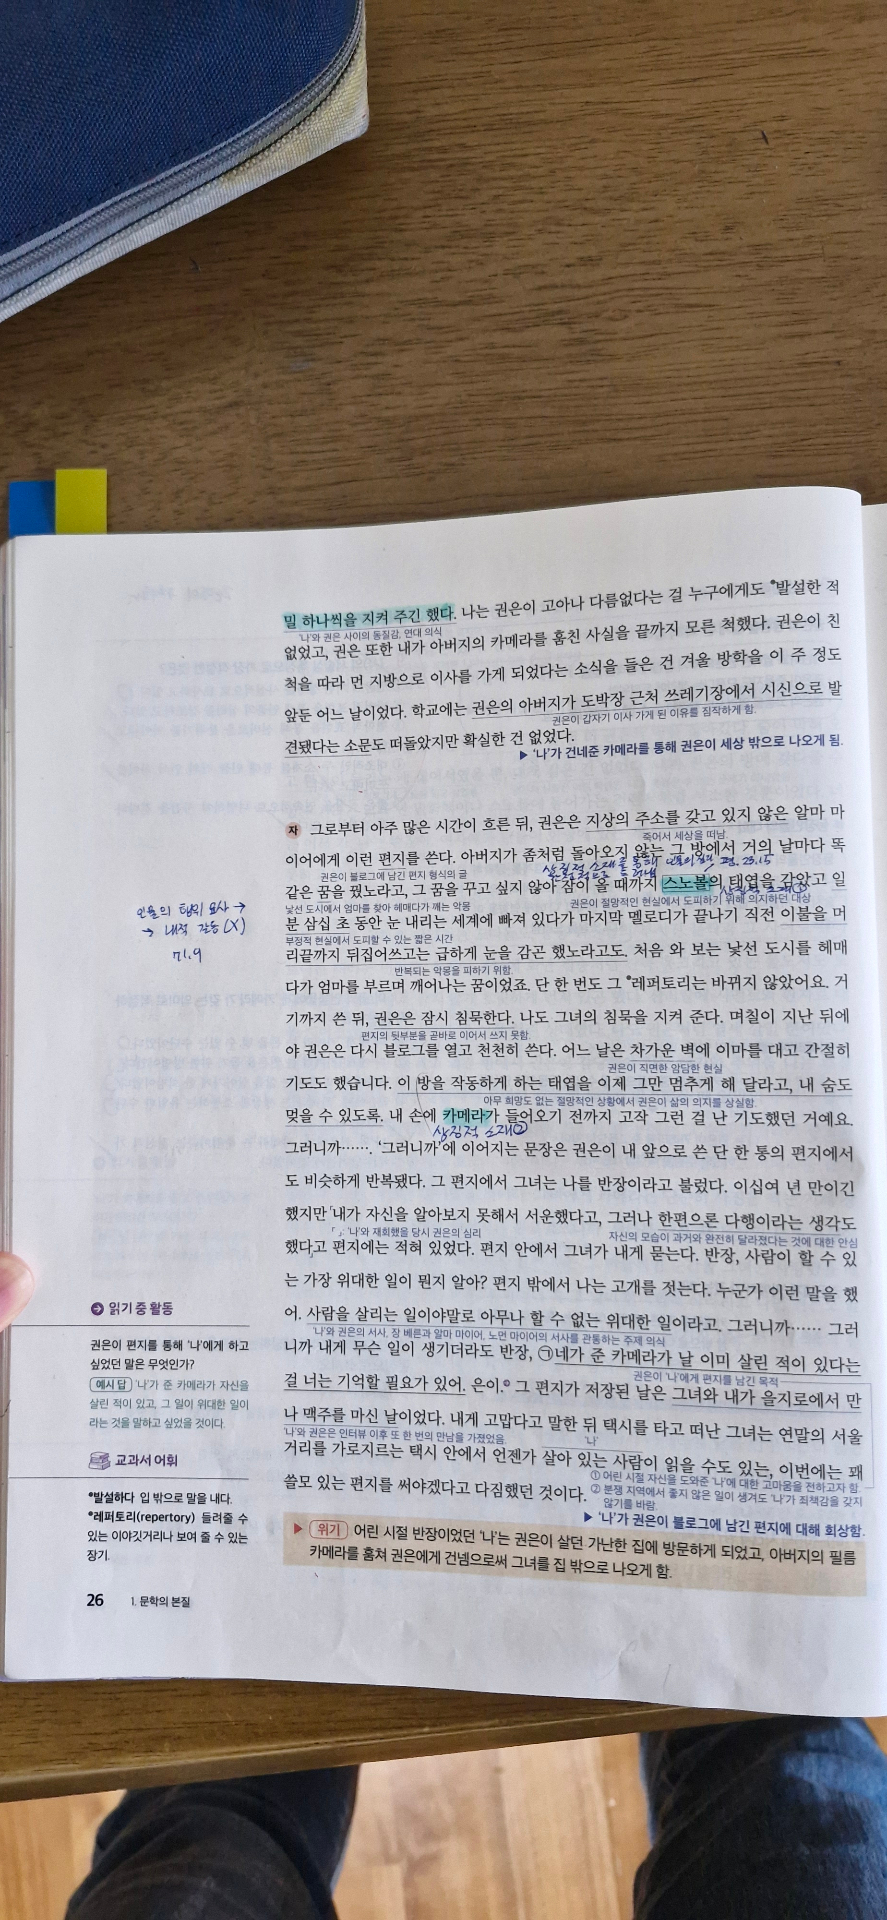 밀 하나씩을 지켜 주긴 했다. 나는 권은이 고아나 다름없다는 걸 누구에게도 *발설한 적
'나'와 권은 사이의 동질감, 연대 의식
없었고, 권은 또한 내가 아버지의 카메라를 훔친 사실을 끝까지 모른 척했다. 권은이 친
척을 따라 먼 지방으로 이사를 가게 되었다는 소식을 들은 건 겨울 방학을 이 주 정도
앞둔 어느 날이었다. 학교에는 권은의 아버지가 도박장 근처 쓰레기장에서 시신으로 발
권은이 갑자기 이사 가게 된 이유를 짐작하게 함.
견됐다는 소문도 떠돌았지만 확실한 건 없었다.
▶ '나'가 건네준 카메라를 통해 권은이 세상 밖으로 나오게 됨.
자 그로부터 아주 많은 시간이 흐른 뒤, 권은은 지상의 주소를 갖고 있지 않은 알마 마
죽어서 세상을 떠남.
이어에게 이런 편지를 쓴다. 아버지가 좀처럼 돌아오지 않는 그 방에서 거의 날마다 똑
권은이 블로그에 남긴 편지 형식의 글
상징적 소재를 통해
같은 꿈을 꿨노라고, 그 꿈을 꾸고 싶지 않아 잠이 올 때까지 스노볼의 태엽을 감았고 일
낯선 도시에서 엄마를 찾아 헤매다가 깨는 악몽
권은이 절망적인 현실에서 도피하기 위해 의지하던 대상
상징적 소재①
분 삼십 초 동안 눈 내리는 세계에 빠져 있다가 마지막 멜로디가 끝나기 직전 이불을 머
부정적 현실에서 도피할 수 있는 짧은 시간
리끝까지 뒤집어쓰고는 급하게 눈을 감곤 했노라고도. 처음 와 보는 낯선 도시를 헤매
반복되는 악몽을 피하기 위함.
다가 엄마를 부르며 깨어나는 꿈이었죠. 단 한 번도 그 *레퍼토리는 바뀌지 않았어요. 거
기까지 쓴 뒤, 권은은 잠시 침묵한다. 나도 그녀의 침묵을 지켜 준다. 며칠이 지난 뒤에
편지의 뒷부분을 곧바로 이어서 쓰지 못함.
야 권은은 다시 블로그를 열고 천천히 쓴다. 어느 날은 차가운 벽에 이마를 대고 간절히
권은이 직면한 암담한 현실
기도도 했습니다. 이 방을 작동하게 하는 태엽을 이제 그만 멈추게 해 달라고, 내 숨도
아무 희망도 없는 절망적인 상황에서 권은이 삶의 의지를 상실함.
멎을 수 있도록. 내 손에 카메라가 들어오기 전까지 고작 그런 걸 난 기도했던 거예요.
상징적 소재②
그러니까……. '그러니까'에 이어지는 문장은 권은이 내 앞으로 쓴 단 한 통의 편지에서
도 비슷하게 반복됐다. 그 편지에서 그녀는 나를 반장이라고 불렀다. 이십여 년 만이긴
했지만 「내가 자신을 알아보지 못해서 서운했다고, 그러나 한편으론 다행이라는 생각도
「 」: '나'와 재회했을 당시 권은의 심리
자신의 모습이 과거와 완전히 달라졌다는 것에 대한 안심
했다고」 편지에는 적혀 있었다. 편지 안에서 그녀가 내게 묻는다. 반장, 사람이 할 수 있
는 가장 위대한 일이 뭔지 알아? 편지 밖에서 나는 고개를 젓는다. 누군가 이런 말을 했
어. 사람을 살리는 일이야말로 아무나 할 수 없는 위대한 일이라고. 그러니까…… 그러
'나'와 권은의 서사, 장 베른과 알마 마이어, 노먼 마이어의 서사를 관통하는 주제 의식
니까 내게 무슨 일이 생기더라도 반장, ㉠네가 준 카메라가 날 이미 살린 적이 있다는
권은이 '나'에게 편지를 남긴 목적
걸 너는 기억할 필요가 있어. 은이. 그 편지가 저장된 날은 그녀와 내가 을지로에서 만
나 맥주를 마신 날이었다. 내게 고맙다고 말한 뒤 택시를 타고 떠난 그녀는 연말의 서울
'나'와 권은은 인터뷰 이후 또 한 번의 만남을 가졌었음.
'나'
거리를 가로지르는 택시 안에서 언젠가 살아 있는 사람이 읽을 수도 있는, 이번에는 꽤
① 어린 시절 자신을 도와준 '나'에 대한 고마움을 전하고자 함.
쓸모 있는 편지를 써야겠다고 다짐했던 것이다.
② 분쟁 지역에서 좋지 않은 일이 생겨도 '나'가 죄책감을 갖지
않기를 바람.
▶ '나'가 권은이 블로그에 남긴 편지에 대해 회상함.
▶ 위기 어린 시절 반장이었던 '나'는 권은이 살던 가난한 집에 방문하게 되었고, 아버지의 필름
카메라를 훔쳐 권은에게 건넴으로써 그녀를 집 밖으로 나오게 함.
인물의 행위 묘사 →
→ 내적 갈등 (X)
기.9
읽기 중 활동
권은이 편지를 통해 '나'에게 하고
싶었던 말은 무엇인가?
예시 답 '나'가 준 카메라가 자신을
살린 적이 있고, 그 일이 위대한 일이
라는 것을 말하고 싶었을 것이다.
교과서 어휘
*발설하다 입 밖으로 말을 내다.
*레퍼토리(repertory) 들려줄 수
있는 이야깃거리나 보여 줄 수 있는
장기.
26 1. 문학의 본질